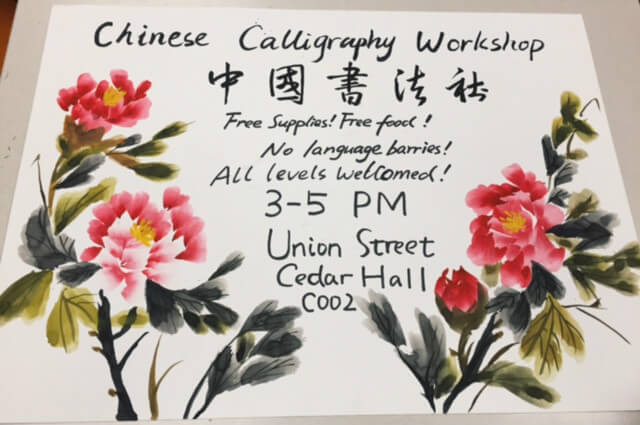 Chinese Calligraphy Workshop
中國書法社
Free Supplies! Free food!
No language barries!
All levels welcomed!
3-5 PM
Union Street
Cedar Hall
C002